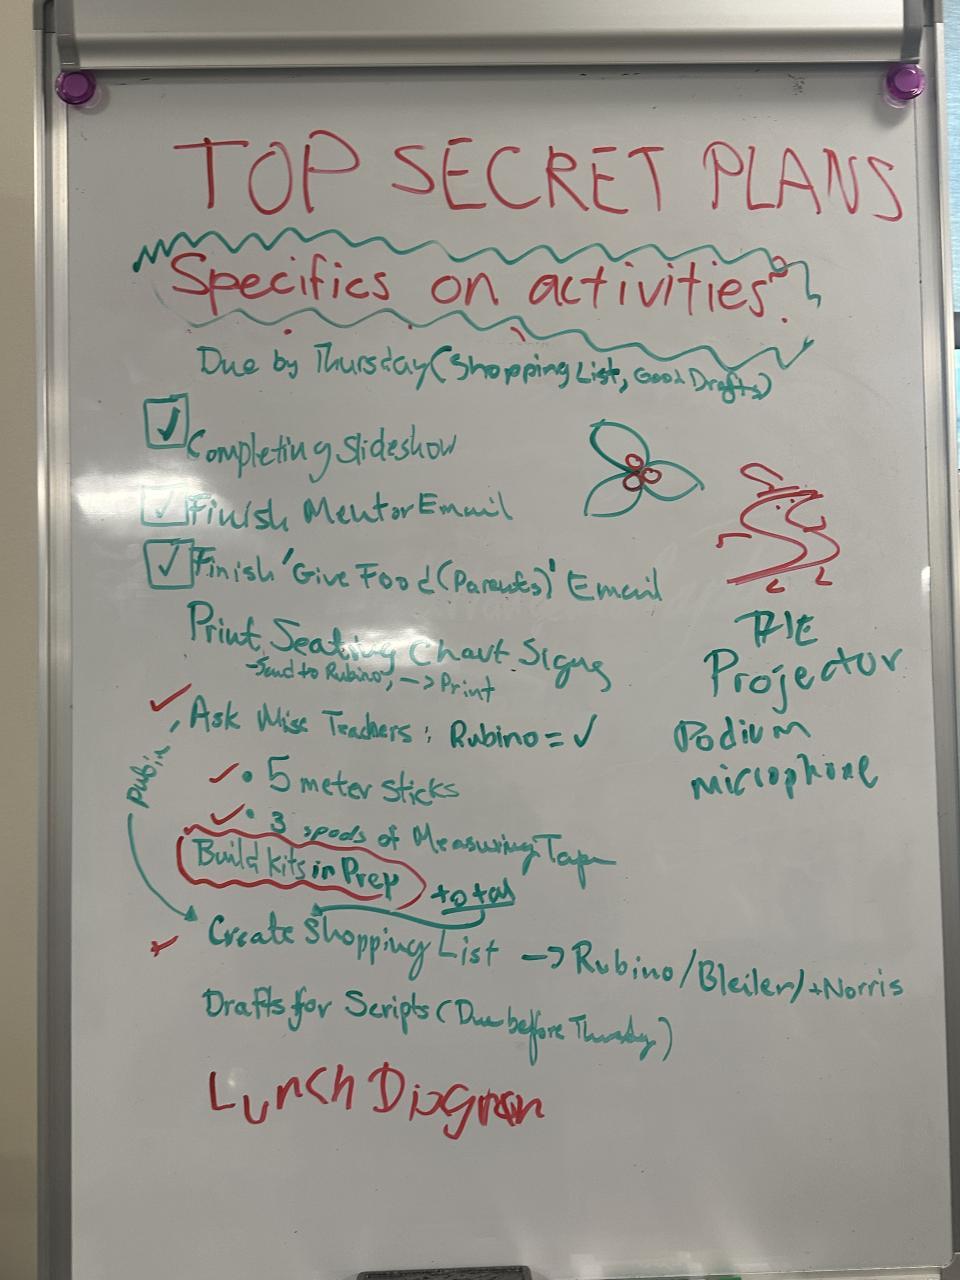 TOP SECRET PLANS
Specifics on activities?
Due by Thursday (Shopping List, Good Drafts)
Completing Slideshow
Finish Mentor Email
Finish 'Give Food (Parents)' Email
Print Seating Chart Signs
→ Send to Rubino, → Print
Ask Misc Teachers: Rubino = ✓
• 5 meter sticks
• 3 spools of Measuring Tape
Build kits in Prep
total
Create Shopping List → Rubino/Bleiler/+Norris
Drafts for Scripts (Due before Thursday)
Lunch Diagram
Projector
Podium
microphone